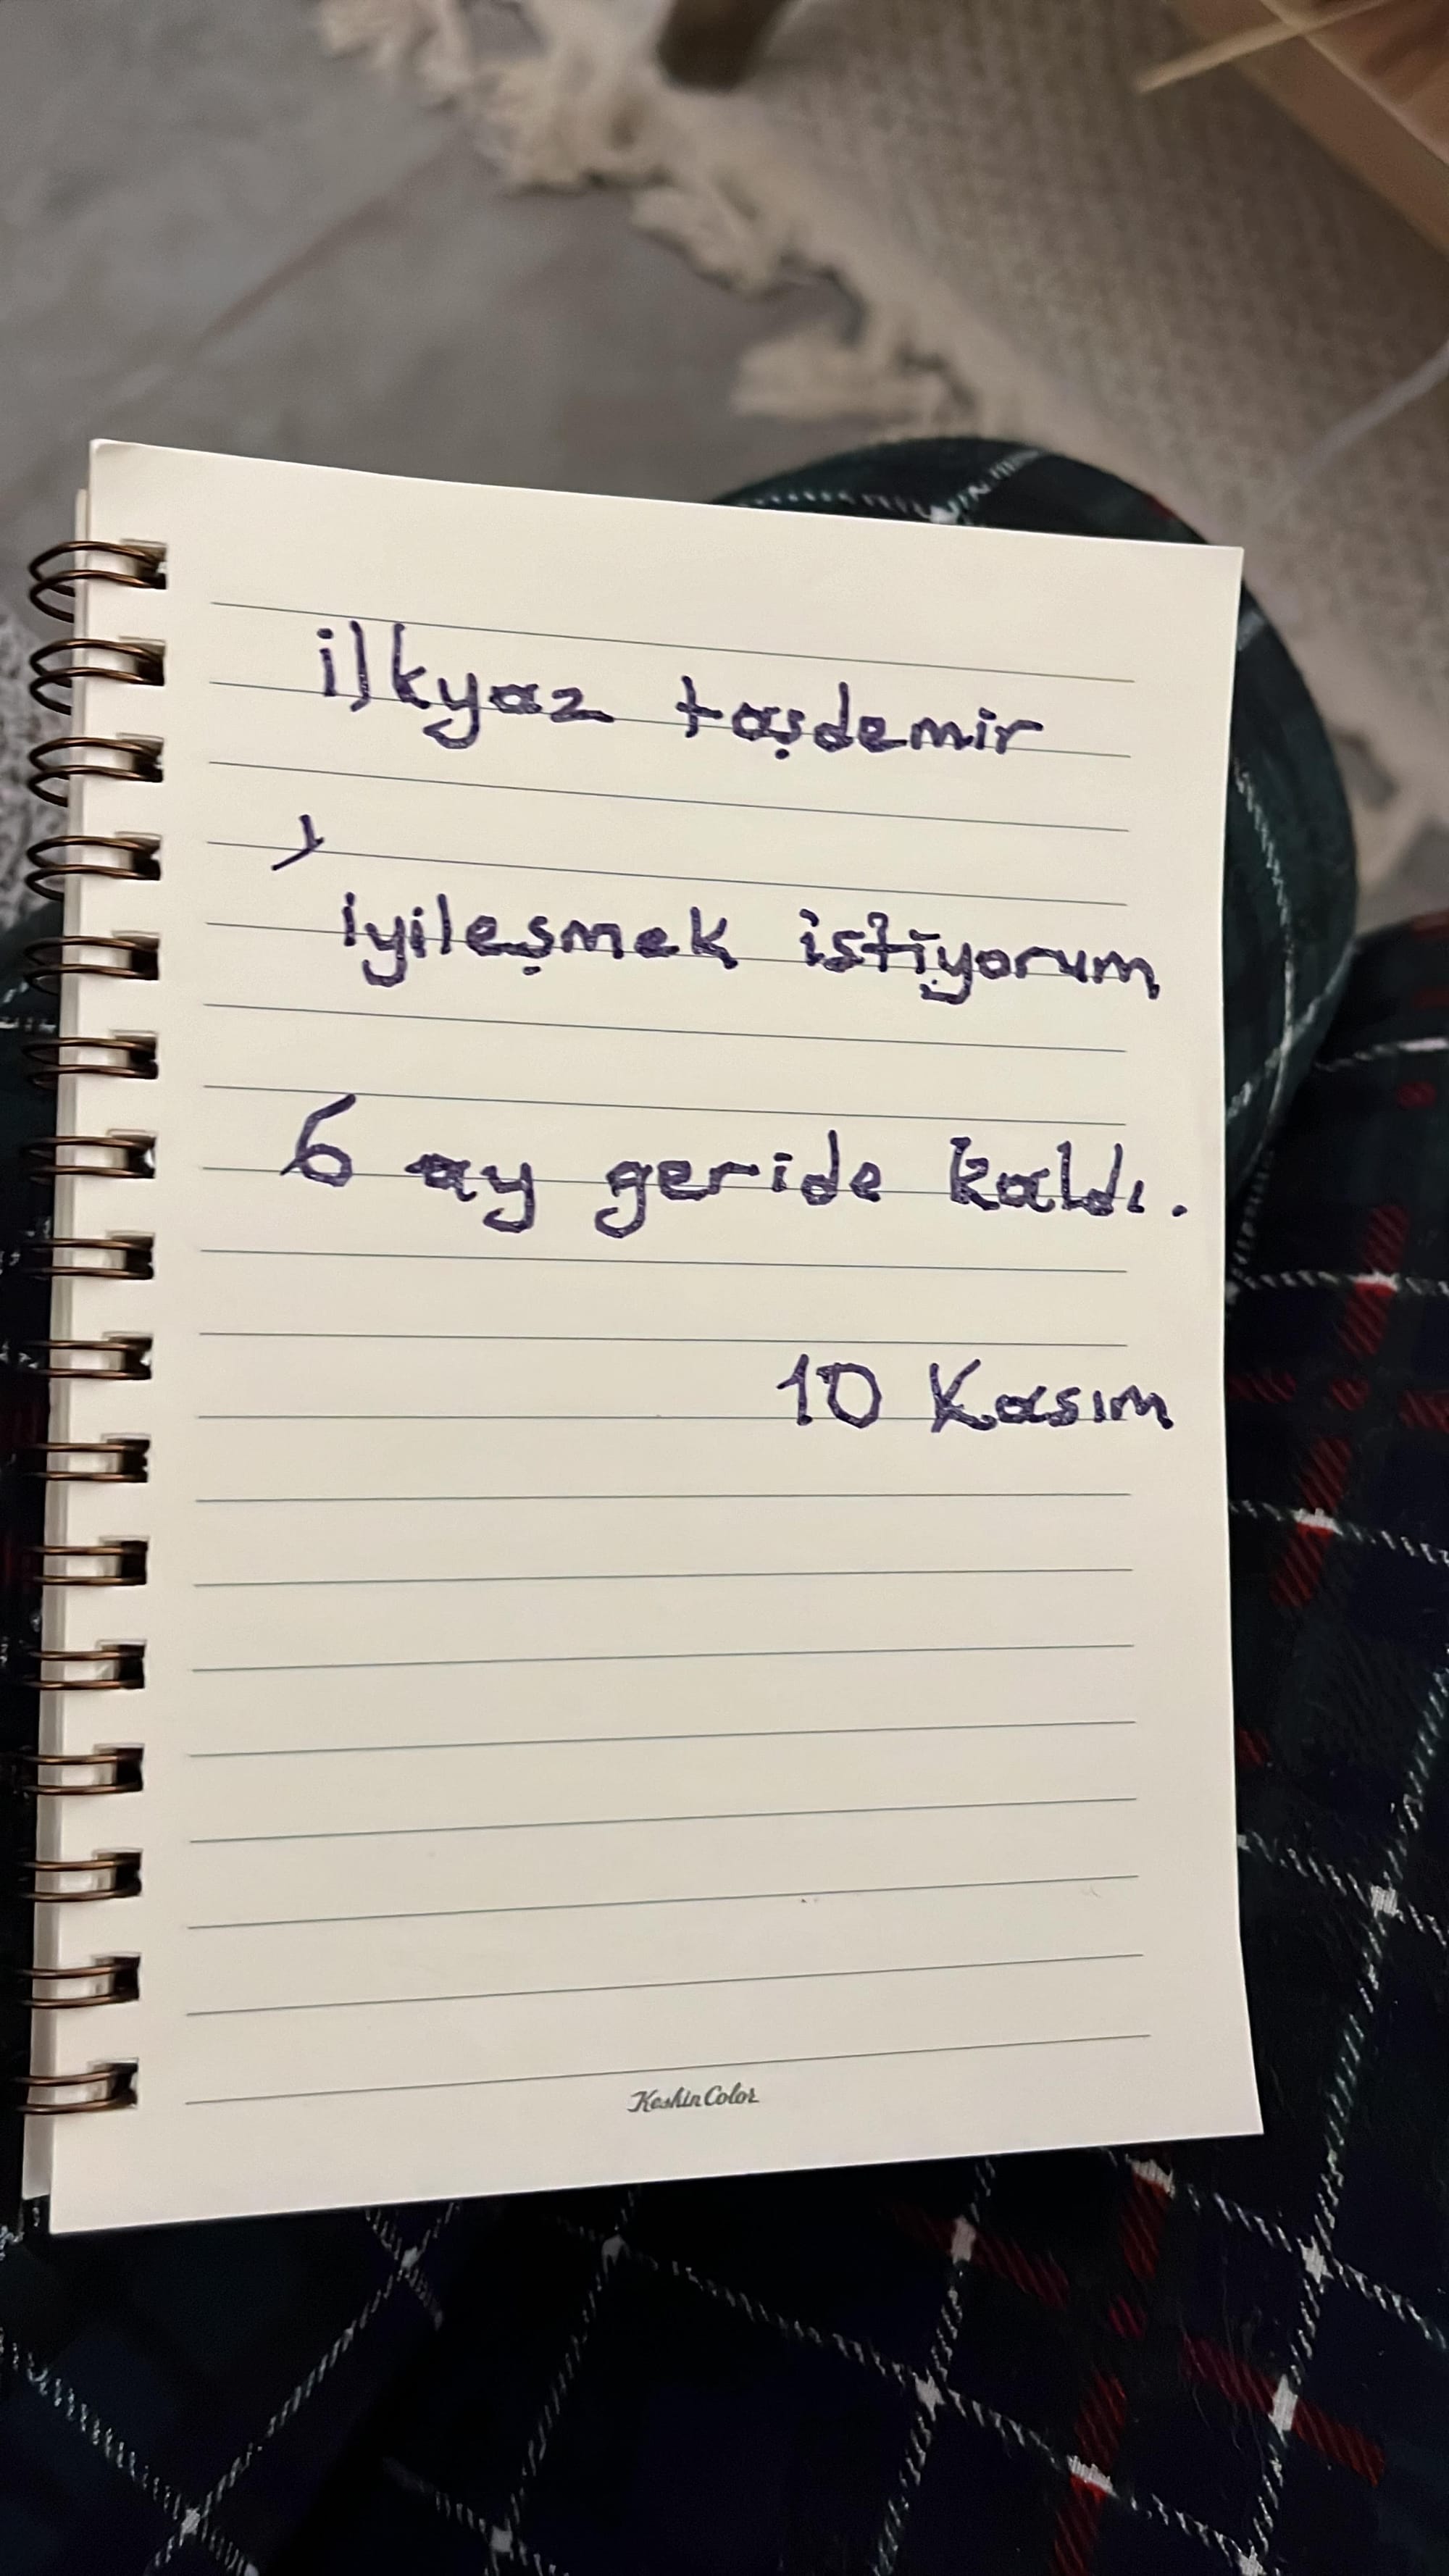 ilkyaz taşdemir
iyileşmek istiyorum
6 ay geride kaldı.
10 Kasım
Keskin Color